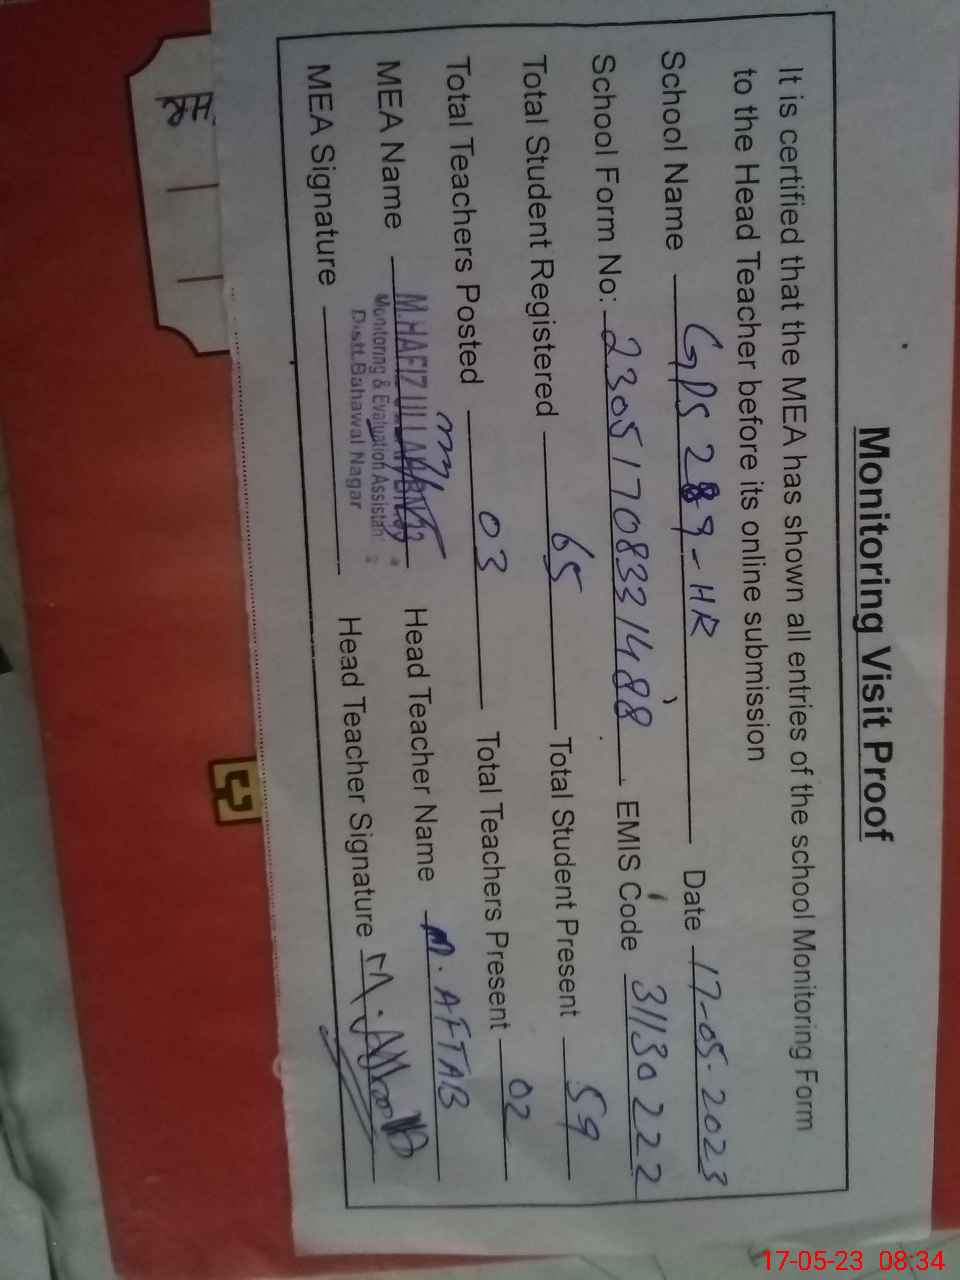 Monitoring Visit Proof
It is certified that the MEA has shown all entries of the school Monitoring Form
to the Head Teacher before its online submission
School Name GPS 289-HR Date 17-05-2023
School Form No: 23051708331488 EMIS Code 31130222
Total Student Registered 65 Total Student Present 59
Total Teachers Posted 03 Total Teachers Present 02
MEA Name M.HAFIZ ULLAH Head Teacher Name M. AFTAB
Monitoring & Evaluation Assistant
Distt. Bahawal Nagar
MEA Signature Head Teacher Signature
17-05-23 08:34